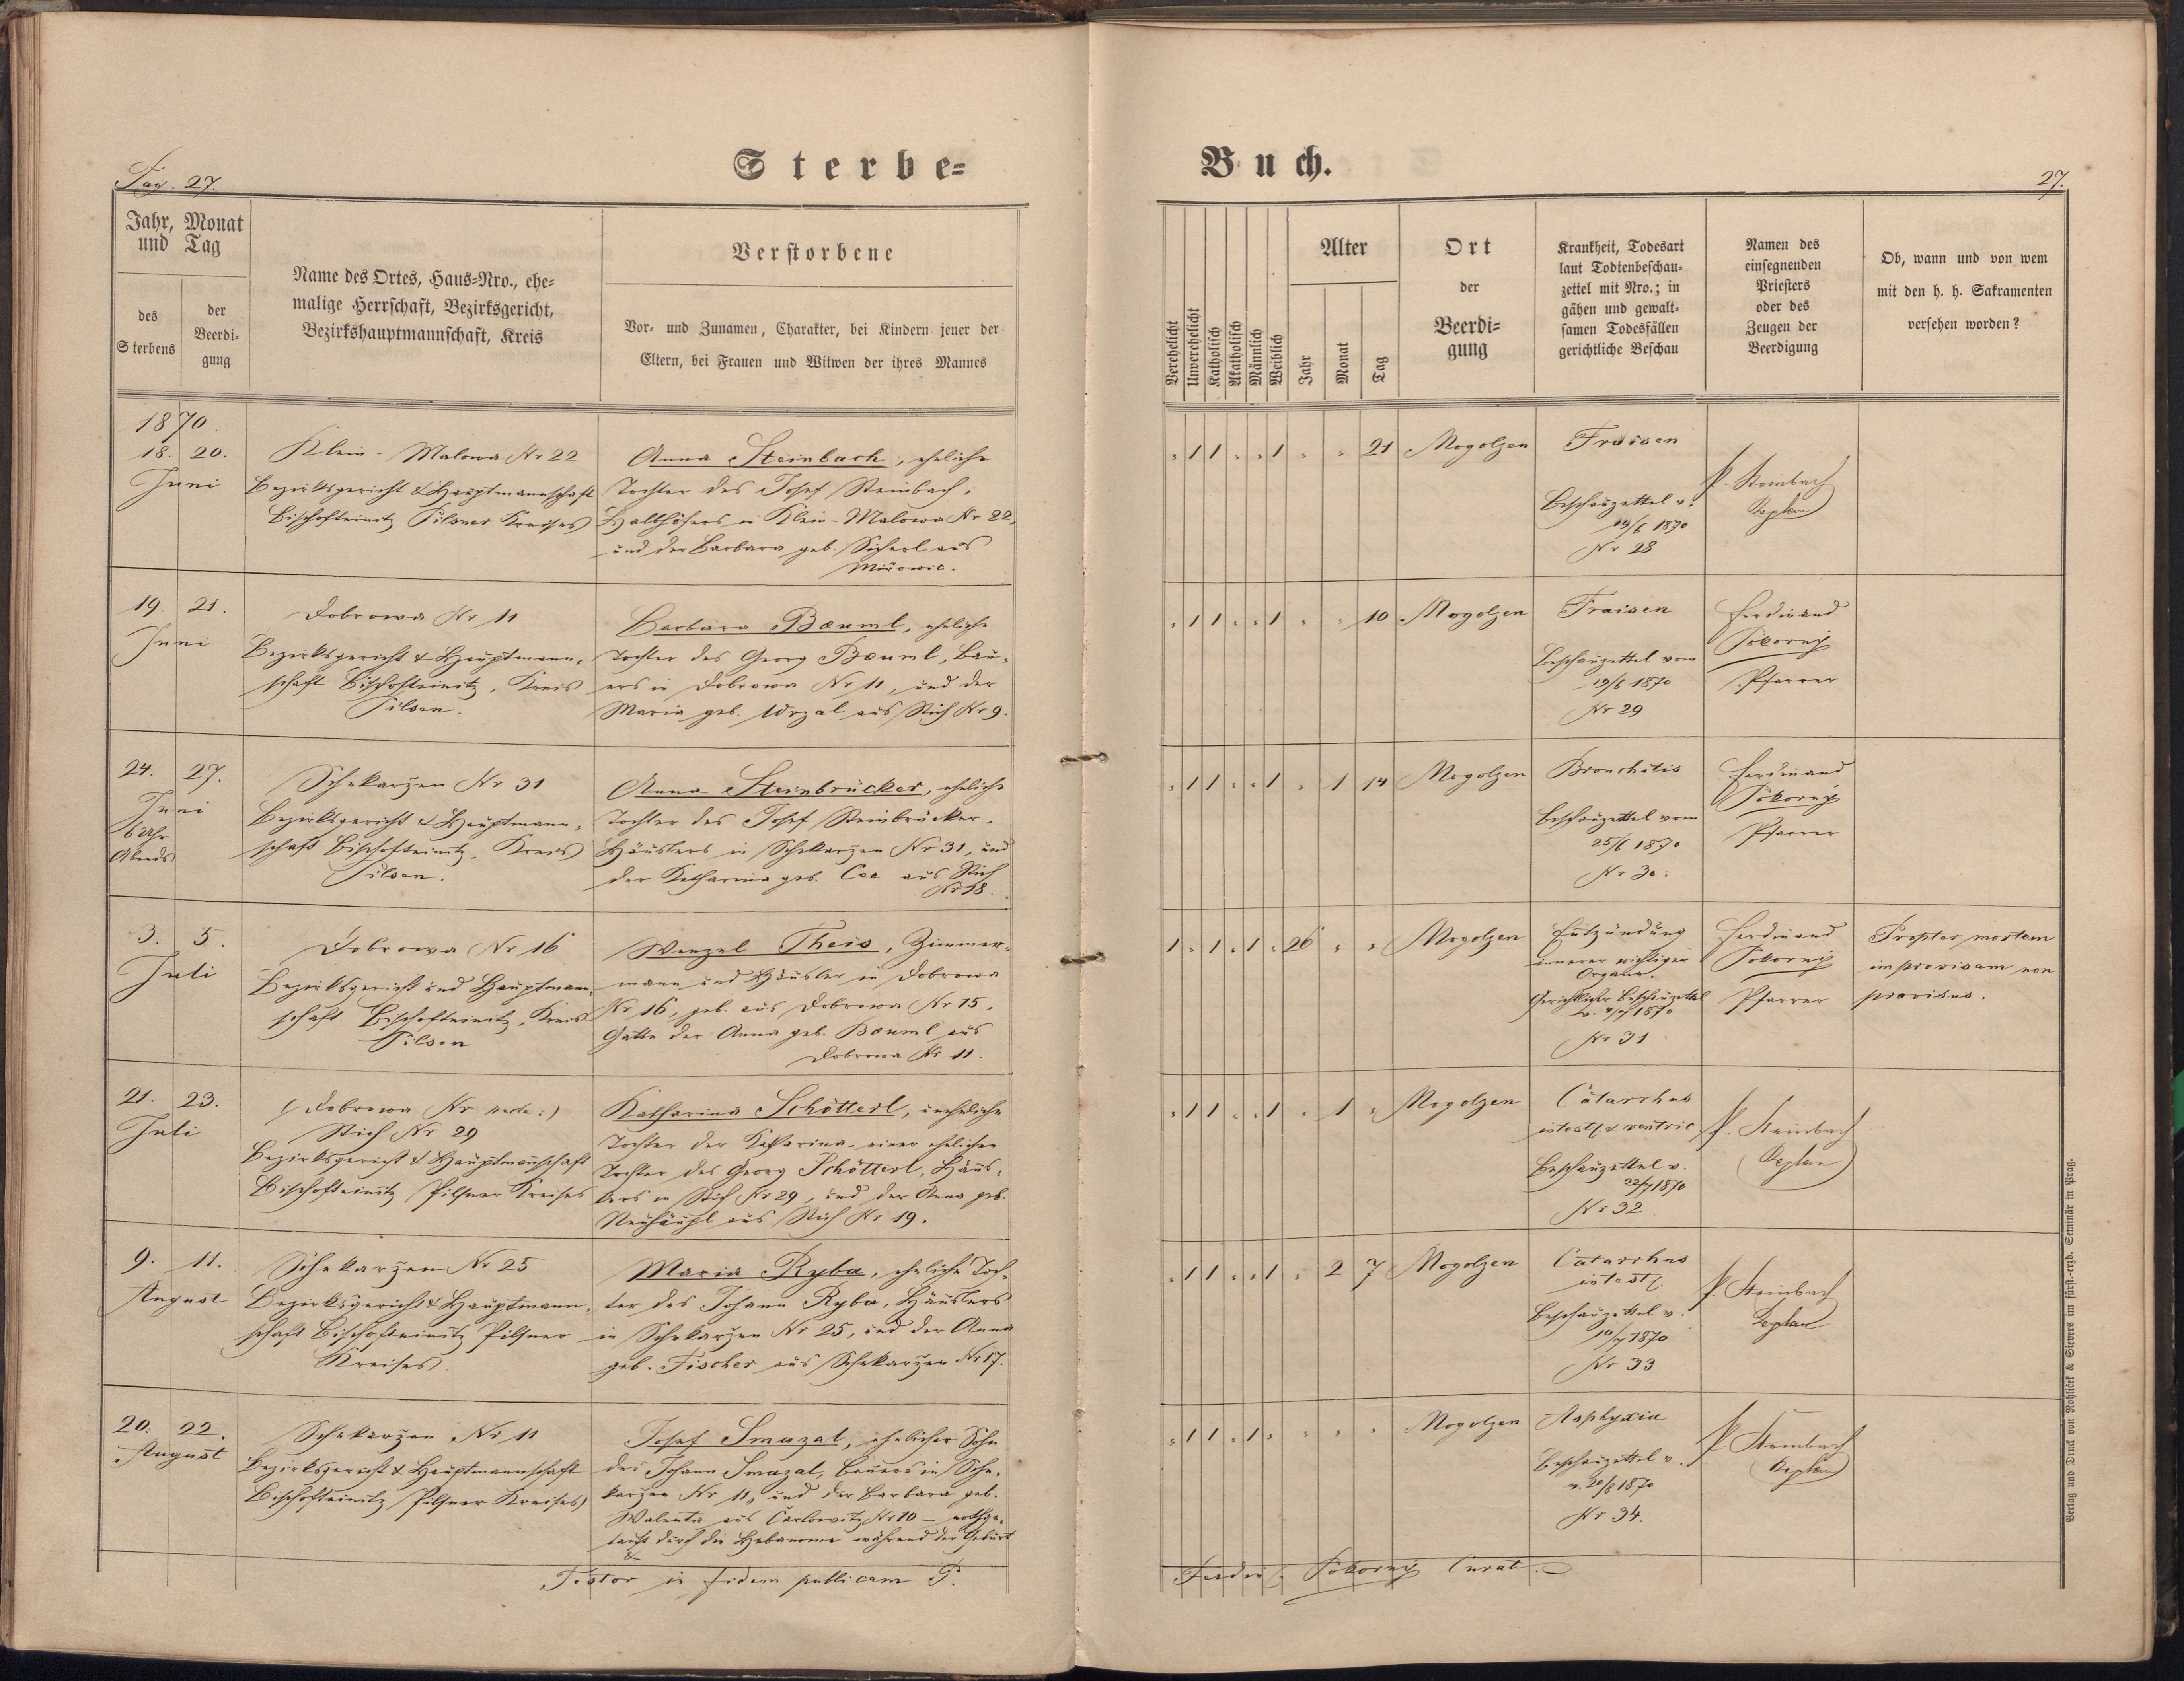 Sterbe=
Buch.
Pag. 27.
27.
Jahr, Monat
und Tag
des
Sterbens
der
Beerdi-
gung
Name des Ortes, Haus=Nro., ehe-
malige Herrschaft, Bezirksgericht,
Bezirkshauptmannschaft, Kreis
Verstorbene
Vor- und Zunamen, Charakter, bei Kindern jener der
Eltern, bei Frauen und Witwen der ihres Mannes
Verehelicht
Unverehelicht
Katholisch
Akatholisch
Männlich
Weiblich
Alter
Jahr
Monat
Tag
Ort
der
Beerdi=
gung
Krankheit, Todesart
laut Todtenbeschau-
zettel mit Nro.; in
gähen und gewalt-
samen Todesfällen
gerichtliche Beschau
Namen des
einsegnenden
Priesters
oder des
Zeugen der
Beerdigung
Ob, wann und von wem
mit den h. h. Sakramenten
versehen worden?
1870.
18. 20.
Juni
Klein-Malowa Nr 22
Bezirksgericht & Hauptmannschaft
Bischofteinitz Pilsner Kreises
Anna Steinbach, eheliche
Tochter des Josef Steinbach,
Halbhöfers in Klein-Malowa Nr 22,
und der Barbara geb. aus
" 1 1 " " 1 " " 21
Mogolzen
Fraisen
Beschauzettel v.
19/6 1870
Nr 28
P. Steinbach
Kaplan
19. 21.
Juni
Dobrowa Nr 11
Bezirksgericht & Hauptmann-
schaft Bischofteinitz, Kreis
Pilsen.
Barbara Bæuml, eheliche
Tochter des Georg Bæuml, Bau-
ers in Dobrowa Nr 11, und der
Maria geb. aus Stich Nr 9.
" 1 1 " " 1 " " 10
Mogolzen
Fraisen
Beschauzettel vom
19/6 1870
Nr 29
Ferdinand
Pokorný
Pfarrer
24. 27.
Juni
6 Uhr
Abends
Schekarzen Nr 31
Bezirksgericht & Hauptmann-
schaft Bischofteinitz, Kreis
Pilsen.
Anna Steinbrücker, eheliche
Tochter des Josef Steinbrücker,
Häuslers in Schekarzen Nr 31, und
der Katharina geb. aus Stich
Nr 18.
" 1 1 " " 1 " 1 14
Mogolzen
Bronchitis
Beschauzettel vom
25/6 1870
Nr 30.
Ferdinand
Pokorný
Pfarrer
3. 5.
Juli
Dobrowa Nr 16
Bezirksgericht und Hauptmann-
schaft Bischofteinitz, Kreis
Pilsen
Wenzel Theis, Zimmer-
mann und Häusler in Dobrowa
Nr 16, geb. aus Dobrowa Nr 15,
Gatte der Anna geb. Bæuml aus
Dobrowa Nr 11.
1 " 1 " 1 " 26 " "
Mogolzen
Entzündung
innerer wichtiger
Organe.
Gerichtlicher Beschauzettel
1870
Nr 31
Ferdinand
Pokorný
Pfarrer
Propter mortem
improvisam non
provisus.
21. 23.
Juli
(Dobrowa Nr recte:)
Stich Nr 29
Bezirksgericht & Hauptmannschaft
Bischofteinitz Pilsner Kreises
Katharina Schötterl, uneheliche
Tochter der Katharina, einer ehelichen
Tochter des Georg Schötterl, Häus-
lers in Stich Nr 29, und der Anna geb.
Neuhäupl aus Stich Nr 19.
" 1 1 " " 1 " 1 "
Mogolzen
Catarrhus
intest. & ventric
Beschauzettel v.
22/7 1870
Nr 32
P. Steinbach
Kaplan
9. 11.
August
Schekarzen Nr 25
Bezirksgericht & Hauptmann-
schaft Bischofteinitz Pilsner
Kreises.
Maria Ryba, eheliche Toch-
ter des Johann Ryba, Häuslers
in Schekarzen Nr 25, und der Anna
geb. Fischer aus Schekarzen Nr 17.
" 1 1 " " 1 " 2 7
Mogolzen
Catarrhus
intest.
Beschauzettel v.
10/7 1870
Nr 33
P. Steinbach
Kaplan
20. 22.
August
Schekarzen Nr 11
Bezirksgericht & Hauptmannschaft
Bischofteinitz Pilsner Kreises
Josef Smazal, ehelicher Sohn
des Johann Smazal, Bauers in Sche-
karzen Nr 11, und der Barbara geb.
Walenta aus Nr 10 – nothge-
tauft durch die Hebamme während der Geburt
" 1 1 " 1 " " " "
Mogolzen
Asphyxia
Beschauzettel v.
v. 20/8 1870
Nr 34.
P. Steinbach
Kaplan
Testor in fidem publicam P.
Ferdin. Pokorný Curat.
Verlag und Druck von Rohliček & Sievers im fürst.-erzb. Seminär in Prag.